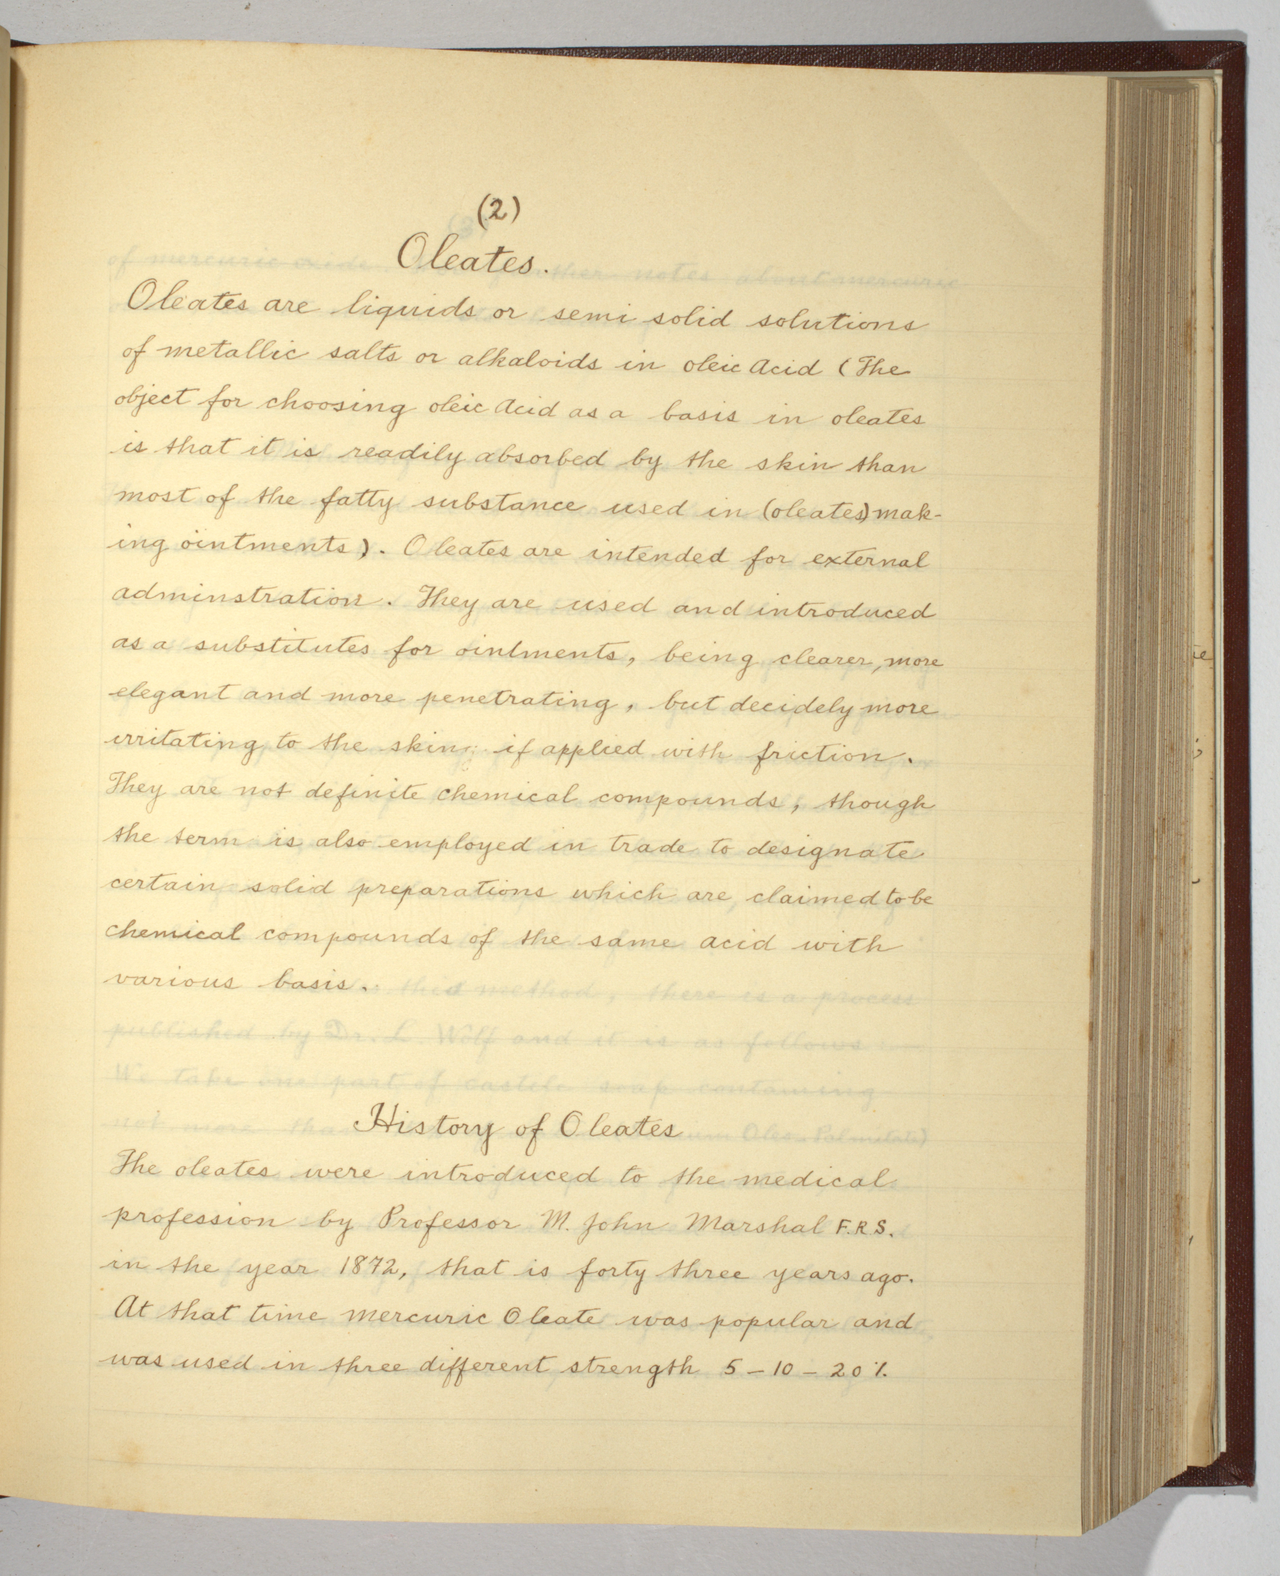 (2)
Oleates.
Oleates are liquids or semi solid solutions
of metallic salts or alkaloids in oleic Acid (The
object for choosing oleic Acid as a basis in oleates
is that it is readily absorbed by the skin than
most of the fatty substance used in (oleates) mak-
ing ointments). Oleates are intended for external
adminstration. They are used and introduced
as a substitutes for ointments, being clearer, more
elegant and more penetrating, but decidely more
irritating to the skin; if applied with friction.
They are not definite chemical compounds, though
the term is also employed in trade to designate
certain solid preparations which are claimed to be
chemical compounds of the same acid with
various basis.
History of Oleates
The oleates were introduced to the medical
profession by Professor M. John Marshal F.R.S.
in the year 1872, that is forty three years ago.
At that time mercuric Oleate was popular and
was used in three different strength 5 – 10 – 20%.